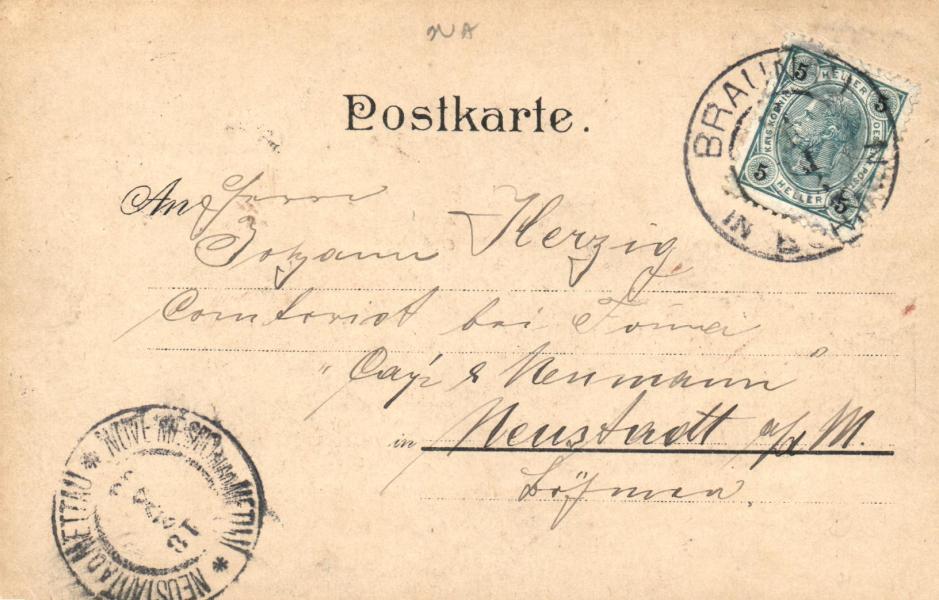 NA
Postkarte.
BRAUNAU IN BÖHMEN
5 HELLER 5
5 HELLER 5
An Herrn
Johann Herzig
Comtorist bei Firma
" & Neumann"
in Neustadt a/M.
Böhmen
NOVÉ MĚSTO METUJÍ
NEUSTADT A.D. METTAU